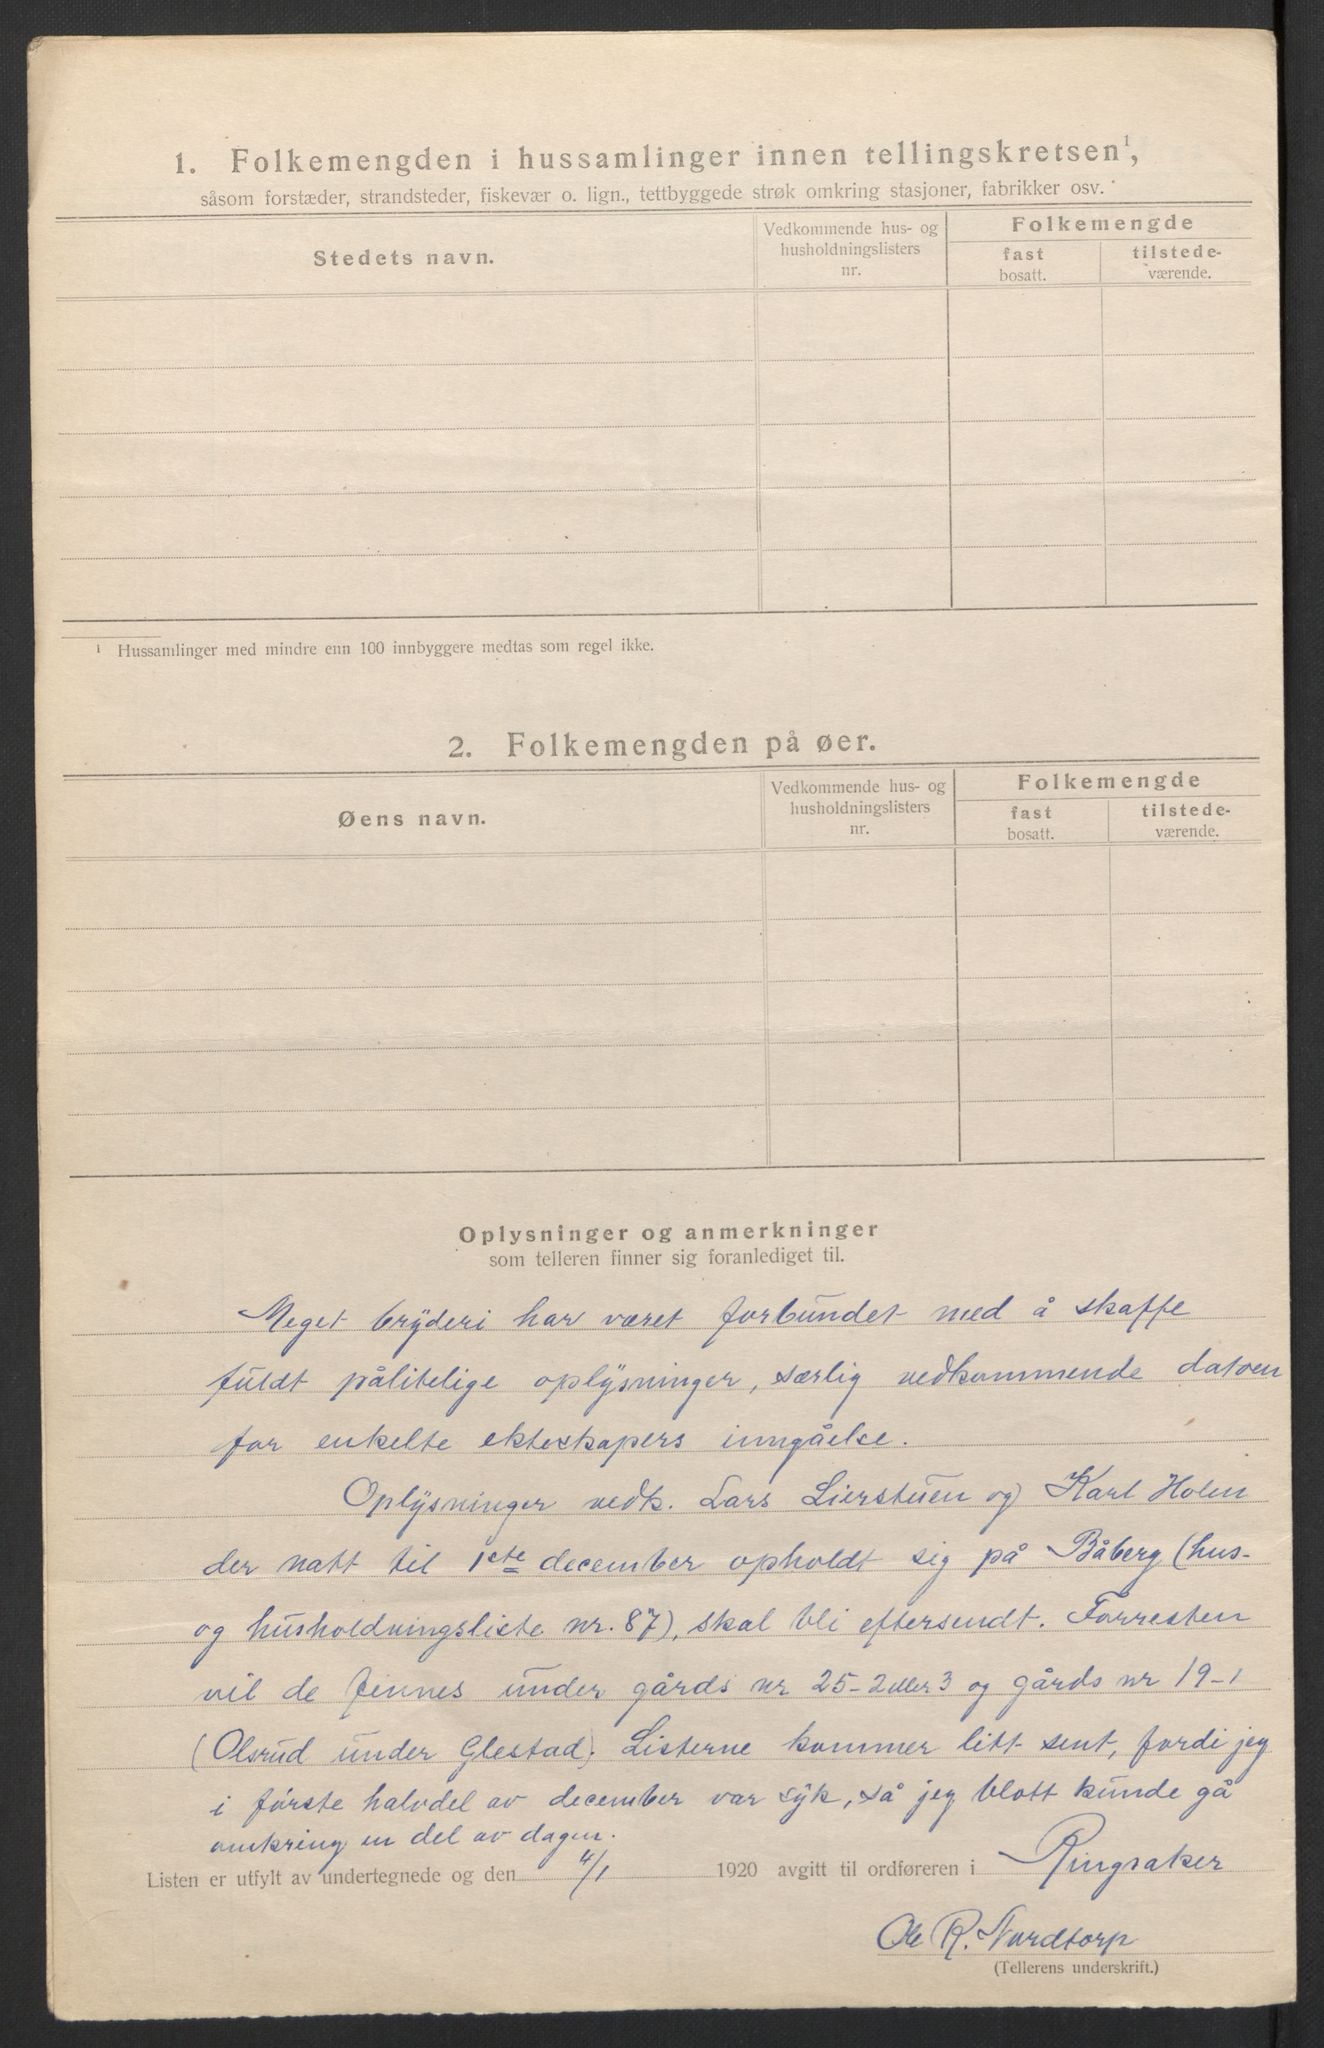 1. Folkemengden i hussamlinger innen tellingskretsen¹,
såsom forstæder, strandsteder, fiskevær o. lign., tettbyggede strøk omkring stasjoner, fabrikker osv.
Stedets navn.
Vedkommende hus- og
husholdningslisters
nr.
Folkemengde
fast
bosatt.
tilstede-
værende.
¹ Hussamlinger med mindre enn 100 innbyggere medtas som regel ikke.
2. Folkemengden på øer.
Øens navn.
Vedkommende hus- og
husholdningslisters
nr.
Folkemengde
fast
bosatt.
tilstede-
værende.
Oplysninger og anmerkninger
som telleren finner sig foranlediget til.
Meget bryderi har været forbundet med å skaffe
fuldt pålitelige oplysninger, særlig vedkommende datoen
for enkelte ekteskapers inngåelse.
Oplysninger vedk. Lars Lierstuen og Karl Holen
der natt til 1ste december opholdt sig på Båberg (hus-
og husholdningsliste nr. 87), skal bli eftersendt. Forresten
vil de finnes under gårds nr 25-2 eller 3 og gårds nr 19-1
(Olsrud under Glestad). Listerne kommer litt sent, fordi jeg
i første halvdel av december var syk, så jeg blott kunde gå
omkring en del av dagen.
Listen er utfylt av undertegnede og den 4/1 1920 avgitt til ordføreren i Ringsaker
Ole R. Nordtorp
(Tellerens underskrift.)